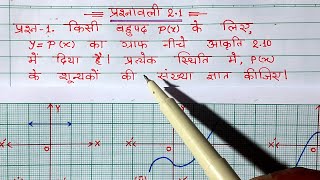 = प्रश्नावली 2.1 =
प्रश्न-1. किसी बहुपद P(Y) के लिए,
y=P(X) का ग्राफ नीचे आकृति 2.10
में दिया है। प्रत्येक स्थिति में, P(x)
के शून्यकों की संख्या ज्ञात कीजिए।
Y Y
X' X X'